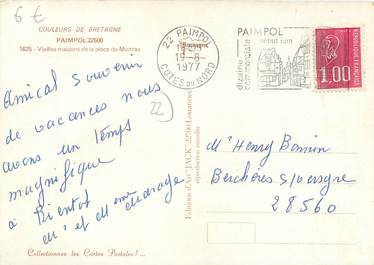 6 €
COULEURS DE BRETAGNE
PAIMPOL 22500
1625 - Vieilles maisons de la place du Martray
Amical souvenir
de vacances nous
avons un temps
magnifique
à Bientot
Mr et Mme
22
Editions d'Art "JACK" 22500 Louannec
reproduction interdite
Collectionnez les Cartes Postales !...
22 PAIMPOL
19-8
1977
COTES DU NORD
PAIMPOL
début juin
dizaine
commerciale
1.00
Mr Henry Bonnin
Berchères s/vesgre
28560